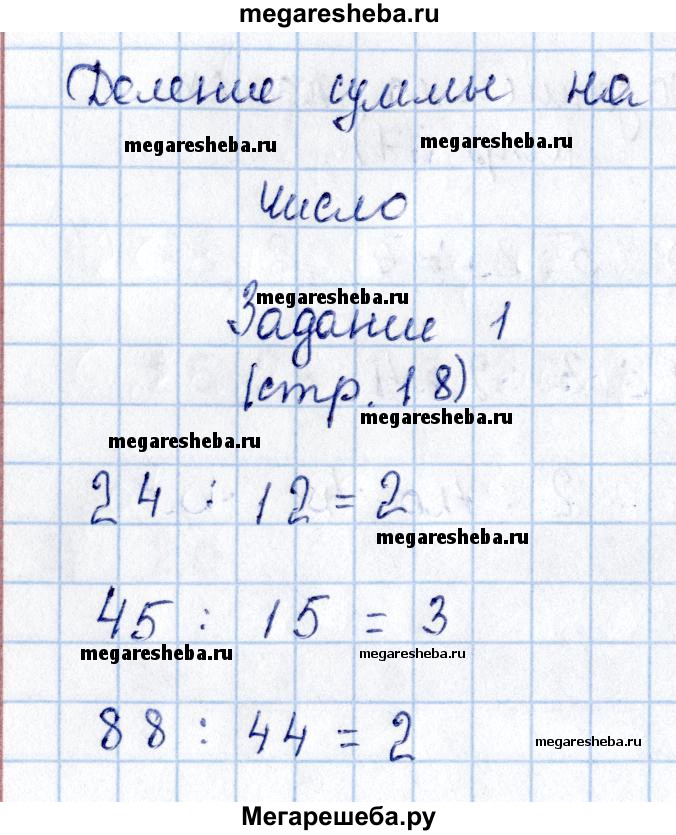 megaresheba.ru
Деление суммы на
megaresheba.ru megaresheba.ru
число
megaresheba.ru
Задание 1
(стр. 18)
megaresheba.ru
megaresheba.ru
24 : 12 = 2
megaresheba.ru
45 : 15 = 3
megaresheba.ru megaresheba.ru
88 : 44 = 2
megaresheba.ru
Мегарешеба.ру